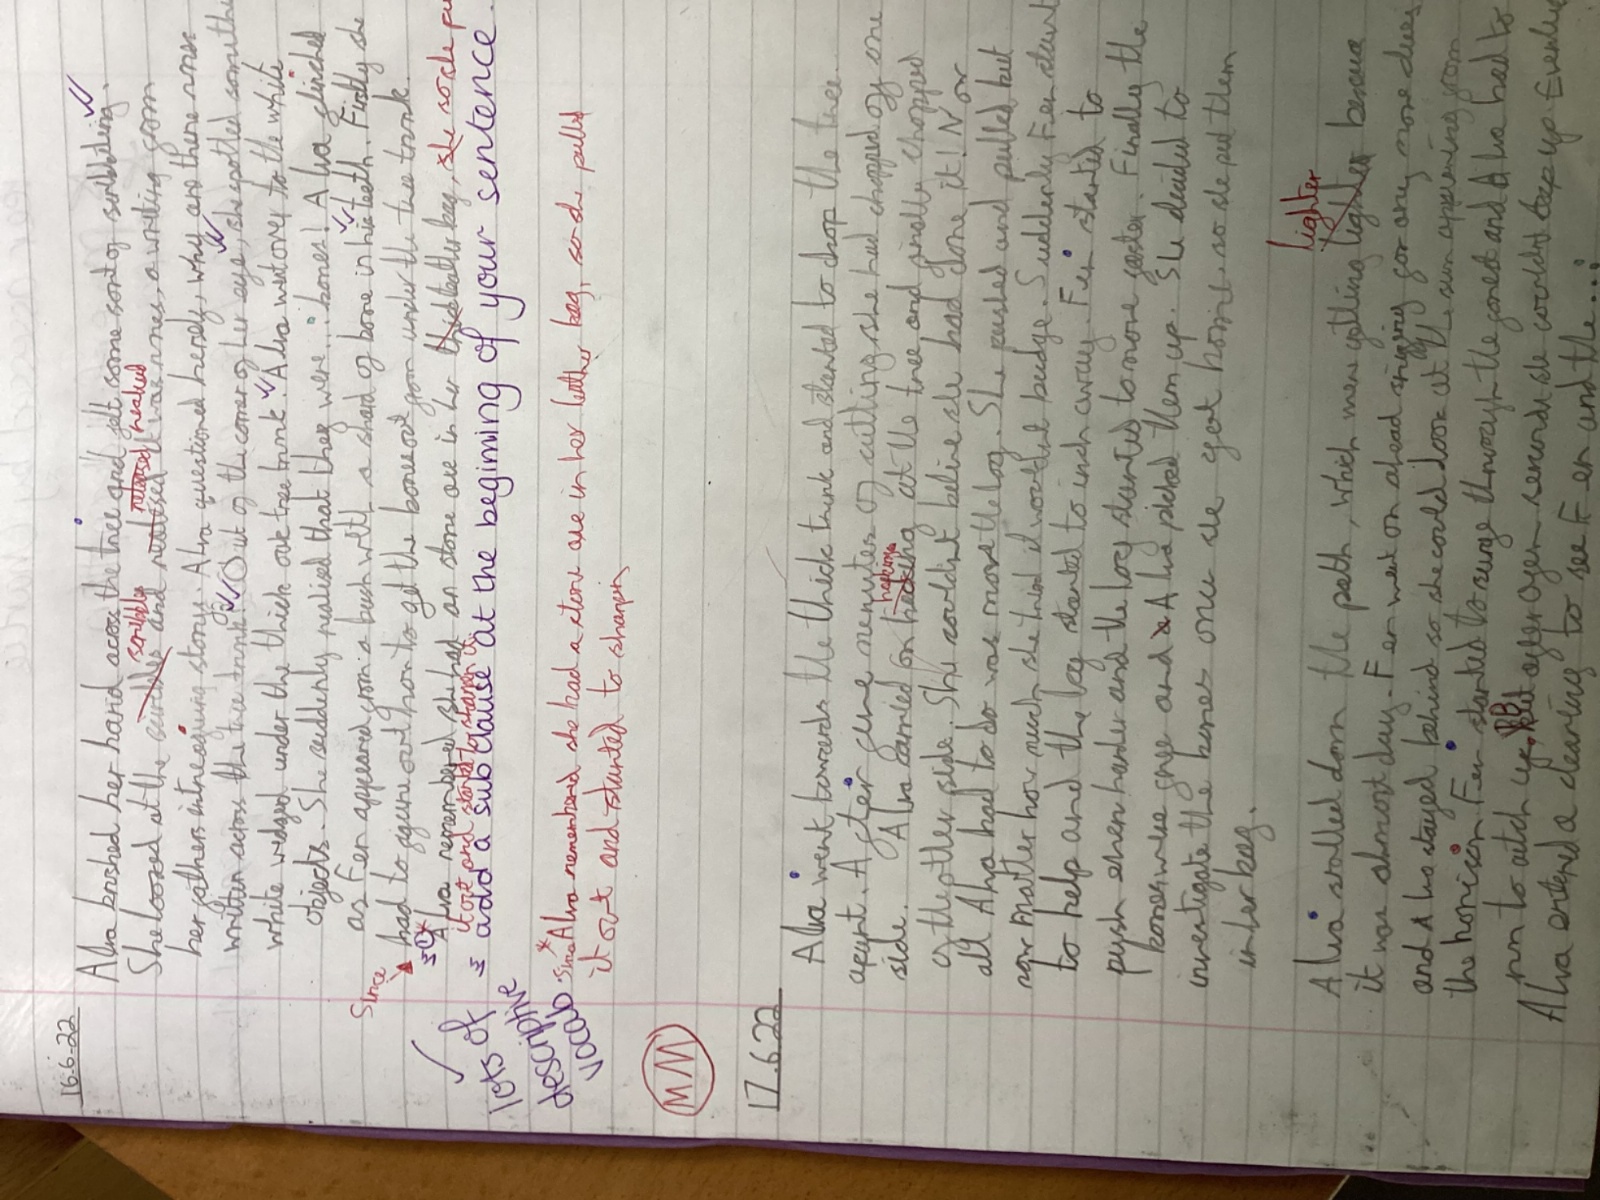 16.6.22
Alva brushed her hand across the tree and felt some sort of scribbling.
scribbles noticed realised
She looked at the and it was runes, a writing from
her fathers intreaging story. Alva questioned herself, why are there runes
written across the tree trunk? Out of the corner of her eye, she spotted somethi
white wedged under the thick oak tree trunk. Alva went over to the white
objects. She suddenly realised that they were... bones! Alva flinched
as Fen appeared from a bush with a shard of bone in his teeth. Finally she
Since
had to figure out how to get the bone out from under the tree trunk.
Alva remembered she had an stone axe in her leather bag, she so she pu
it out and started sharpening
✓ lots of descriptive vocab
add a sub clause at the begining of your sentence.
Since Alva remembered she had a stone axe in her leather bag, so she pulled
it out and started to sharpen
MM
17.6.22
Alva went towards the thick trunk and started to drop the tree
apart. After five minutes of cutting she had chopped of one
hacking
side. Alva carried on at the tree and finally chopped
of the other side. She couldnt belive she had done it! Now
all Alva had to do was move the log. She pushed and pulled but
now matter how much she tried it wouldnt budge. Suddenly Fen start
to help and the log started to inch away. Fen started to
push even harder and the log started to move faster. Finally the
bones were free and Alva picked them up. She decided to
investigate the bones once she got home so she put them
in her bag.
lighter
Alva strolled down the path, which were getting lighter because
it was almost day. Fen went on ahead for any more
and Alva stayed behind so she could look at the sun apearing from
the horison. Fen started to surge through the forest and Alva had to
run to catch up. But after a few seconds she couldnt keep up. Eventua
Alva entered a clearing to see Fen and the...